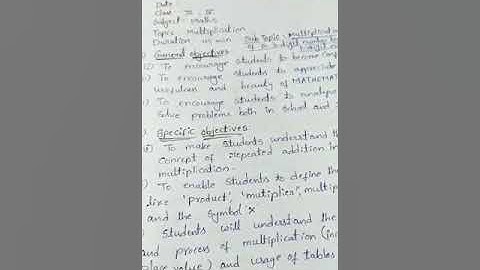 Date
Class
Subject: Maths
Topic: Multiplication
Duration: Sub Topic: Multiplication
of a 3 digit number by
General objectives
To encourage students to become
To encourage students to appreciate
usefulness and beauty of MATHEMAT
To encourage students to
solve problems both in school and
Specific objectives:
To make students understand th
concept of repeated addition in
multiplication.
To enable students to define the
like 'product', 'multiplier', multip
and the symbol ×
Students will understand the
and process of multiplication (in
place value) and usage of tables